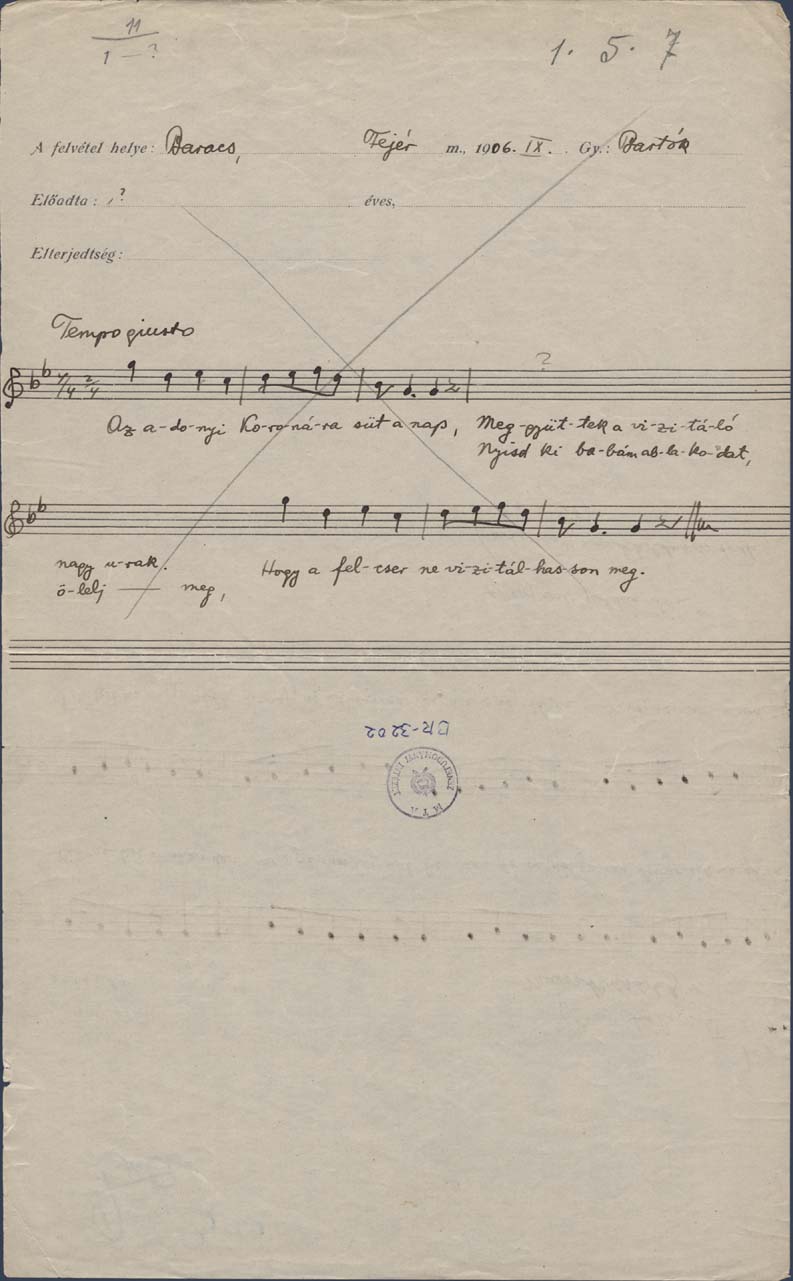 11
1 — ?
1. 5. 7
A felvétel helye: Baracs, Fejér m., 1906. IX. Gy.: Bartók
Előadta: ? éves,
Elterjedtség:
Tempo giusto
?
4/4 2/4
Az a-do-nyi Ko-ro-ná-ra süt a nap, Meg-gyüt-tek a vi-zi-tá-ló
Nyisd ki ba-bám ab-la-ko-dat,
nagy u-rak. Hogy a fel-cser ne vi-zi-tál-has-son meg.
ö-lelj — meg,
BR-3202
MTA